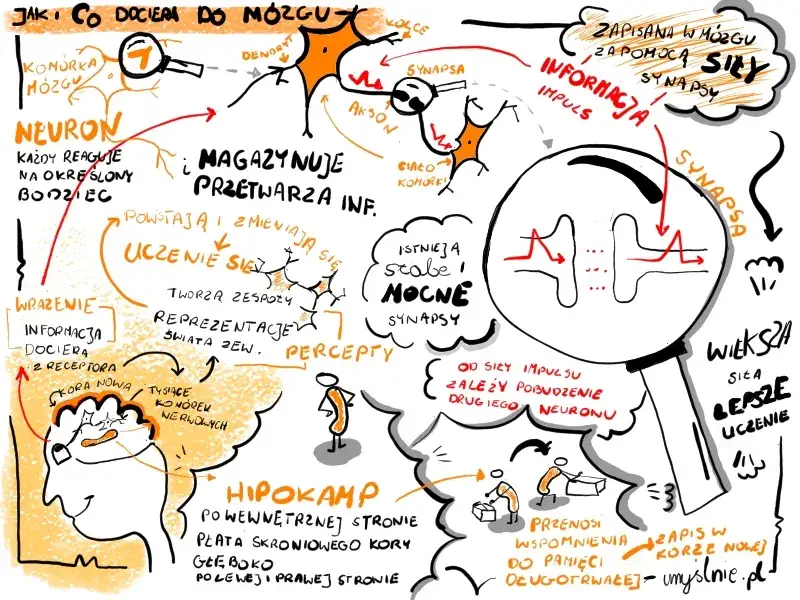 JAK i CO DOCIERA DO MÓZGU
KOMÓRKA
MÓZGU
DENDRYT
KOLCE
SYNAPSA
AKSON
CIAŁO
KOMÓRKI
NEURON
KAŻDY REAGUJE
NA OKREŚLONY
BODZIEC
i MAGAZYNUJE
PRZETWARZA INF.
INFORMACJA
IMPULS
ZAPISANA W MÓZGU
ZA POMOCĄ SIŁY
SYNAPSY
SYNAPSA
POWSTAJĄ I ZMIENIAJĄ SIĘ
UCZENIE SIĘ
TWORZĄ ZESPOŁY
REPREZENTACJE
ŚWIATA ZEW.
PERCEPTY
ISTNIEJĄ
słabe i
MOCNE
SYNAPSY
WIĘKSZA
SIŁA
LEPSZE
UCZENIE
OD SIŁY IMPULSU
ZALEŻY POBUDZENIE
DRUGIEGO NEURONU
WRAŻENIE
INFORMACJA
DOCIERA
Z RECEPTORA
KORA NOWA
TYSIĄCE
KOMÓREK
NERWOWYCH
HIPOKAMP
PO WEWNĘTRZNEJ STRONIE
PŁATA SKRONIOWEGO KORY
GŁĘBOKO
PO LEWEJ I PRAWEJ STRONIE
PRZENOSI
WSPOMNIENIA
DO PAMIĘCI
DŁUGOTRWAŁEJ
ZAPIS W
KORZE NOWEJ
umyślnie.pl